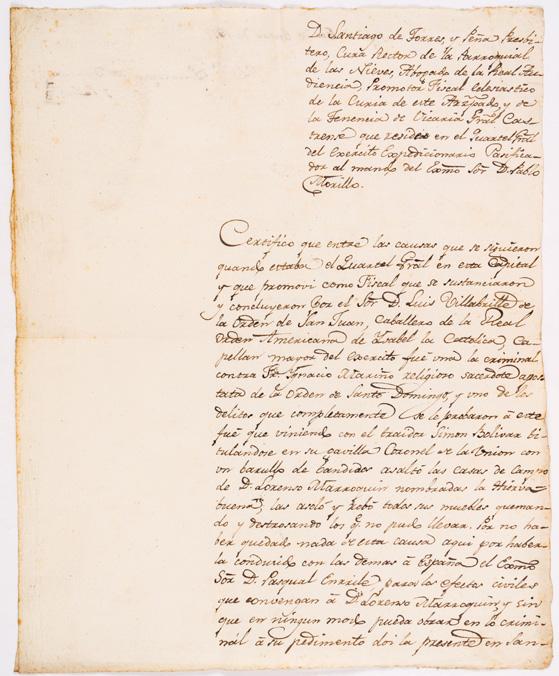 D. Santiago de Torres, y Peña Presbi-
tero, Cura Rector de la Parroquial
de las Nieves, Abogado de la Real Au-
diencia, Promotor Fiscal Eclesiastico
de la Curia de este Arzpado, y de
la Tenencia de Vicaria Gral Cas-
trense que reside en el Quartel Gral
del Exercito Expedicionario Pacifica-
dor al mando del Exmo Sor D. Pablo
Morillo.
Certifico que entre las causas que se siguieron
quando estaba el Quartel Gral en esta Capital
y que promovi como Fiscal que se sustanciaron
y concluyeron por el Sor D. Luis Villabrille de
la Orden de San Juan, Caballero de la Real
Orden Americana de Ysabel la Cattolica, Ca-
pellan mayor del exercito fué una la criminal
contra Fr. Ignacio Mariño religioso sacerdote apos-
tata de la Orden de Santo Domingo, y uno de los
delitos que completamente se le probaron á este
fué que viniendo con el traidor Simon Bolivar ti-
tulandose en su gavilla Coronel de la Union con
un barullo de bandidos asaltó las casas de campo
de D. Lorenso Marroquin nombradas la Hierva-
buena, las asoló y robó todos sus muebles queman-
do y destrosando los q. no pudo llevar. Por no ha-
ber quedado nada de esta causa aqui por haber-
la conducido con las demas á España el Exmo
Sor D. Pasqual Enrile para los efectos civiles
que convengan á D. Lorenso Marroquin, y sin
que en ningun modo pueda obrar en lo crimi-
nál á su pedimento doi la presente en San-